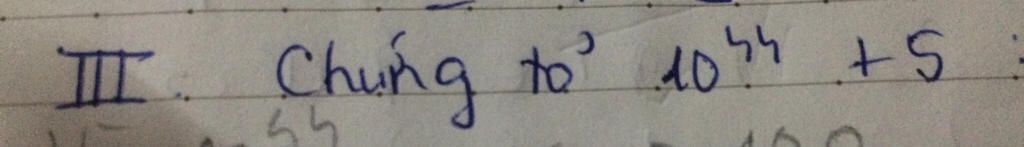 III. Chứng tỏ 10⁴⁴ + 5 :